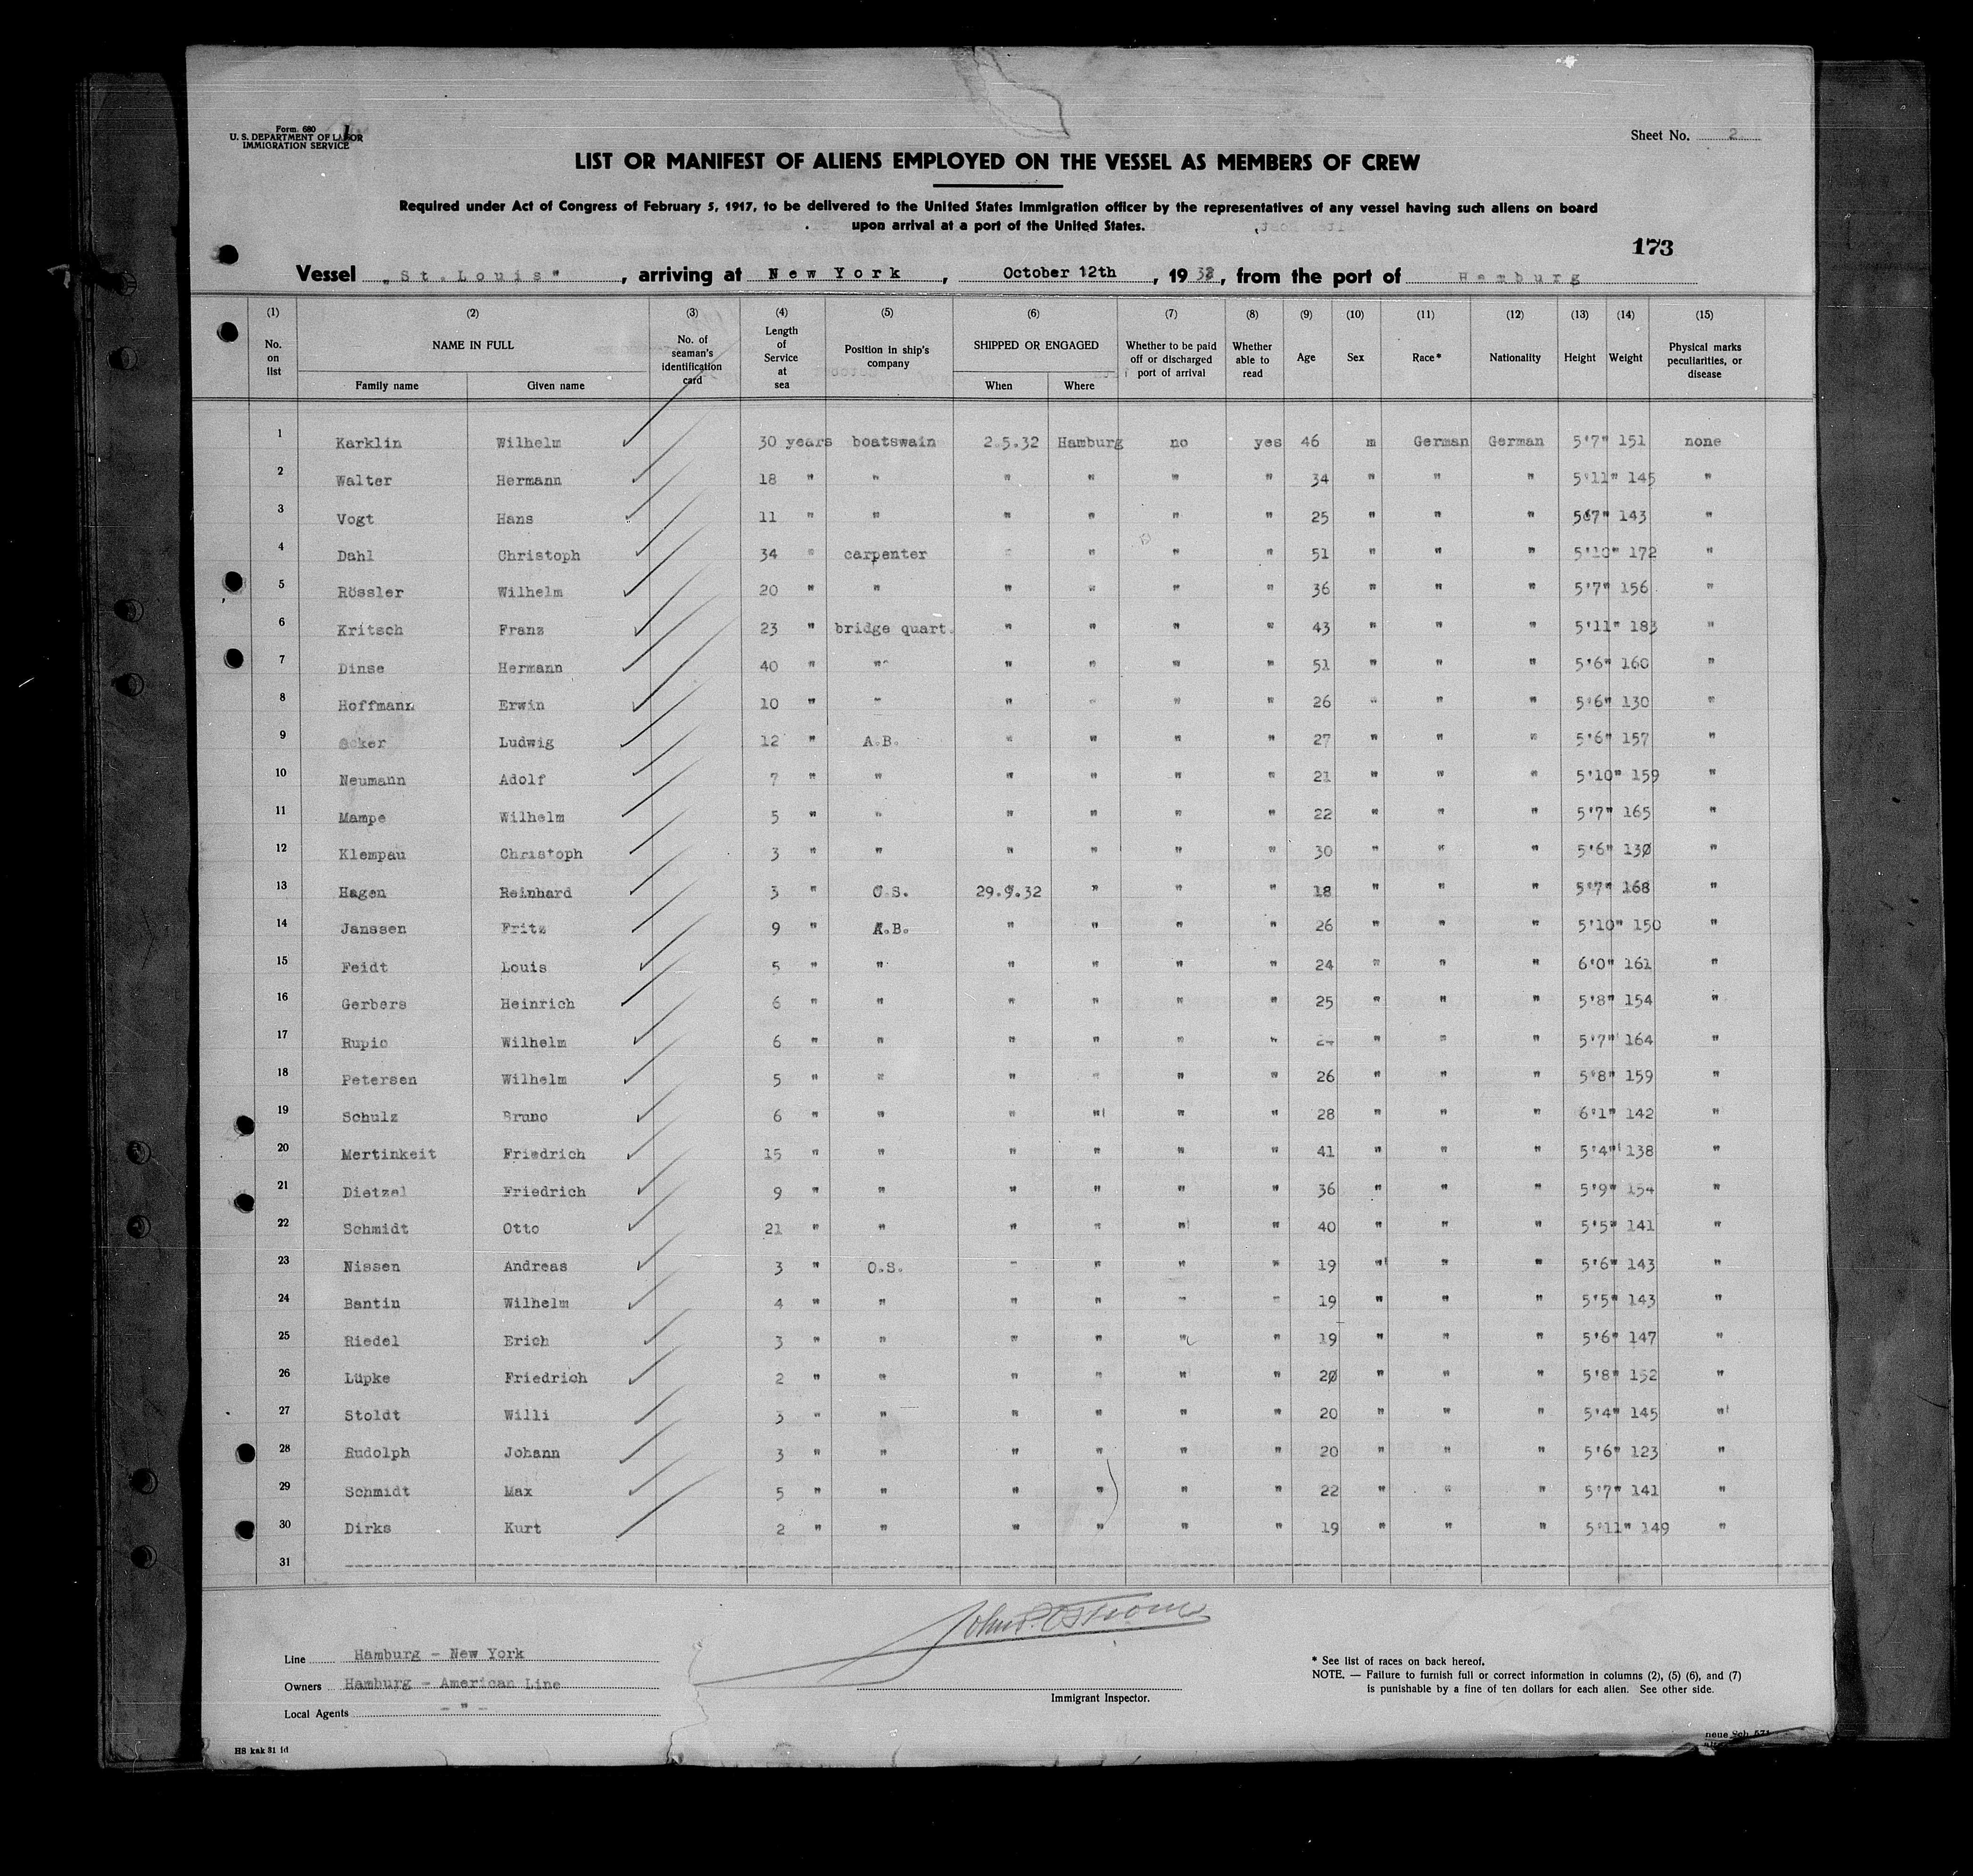 Form. 680
U. S. DEPARTMENT OF LABOR
IMMIGRATION SERVICE
Sheet No. 2
LIST OR MANIFEST OF ALIENS EMPLOYED ON THE VESSEL AS MEMBERS OF CREW
Required under Act of Congress of February 5, 1917, to be delivered to the United States Immigration officer by the representatives of any vessel having such aliens on board
upon arrival at a port of the United States.
173
Vessel „St.Louis", arriving at New York, October 12th, 1932, from the port of Hamburg
(1) (2) (3) (4) (5) (6) (7) (8) (9) (10) (11) (12) (13) (14) (15)
No. on list NAME IN FULL Family name Given name No. of seaman's identification card Length of Service at sea Position in ship's company SHIPPED OR ENGAGED When Where Whether to be paid off or discharged port of arrival Whether able to read Age Sex Race* Nationality Height Weight Physical marks peculiarities, or disease
1 Karklin Wilhelm 30 years boatswain 2.5.32 Hamburg no yes 46 m German German 5'7" 151 none
2 Walter Hermann 18 " " " " " " 34 " " " 5'11" 145 "
3 Vogt Hans 11 " " " " " " 25 " " " 5'7" 143 "
4 Dahl Christoph 34 " carpenter " " " " 51 " " " 5'10" 172 "
5 Rössler Wilhelm 20 " " " " " " 36 " " " 5'7" 156 "
6 Kritsch Franz 23 " bridge quart. " " " " 43 " " " 5'11" 183 "
7 Dinse Hermann 40 " " " " " " 51 " " " 5'6" 160 "
8 Hoffmann Erwin 10 " " " " " " 26 " " " 5'6" 130 "
9 Ludwig 12 " A.B. " " " " 27 " " " 5'6" 157 "
10 Neumann Adolf 7 " " " " " " 21 " " " 5'10" 159 "
11 Mampe Wilhelm 5 " " " " " " 22 " " " 5'7" 165 "
12 Klempau Christoph 3 " " " " " " 30 " " " 5'6" 130 "
13 Hagen Reinhard 3 " O.S. 29.9.32 " " " 18 " " " 5'7" 168 "
14 Janssen Fritz 9 " A.B. " " " " 26 " " " 5'10" 150 "
15 Feidt Louis 5 " " " " " " 24 " " " 6'0" 161 "
16 Gerbers Heinrich 6 " " " " " " 25 " " " 5'8" 154 "
17 Rupio Wilhelm 6 " " " " " " 24 " " " 5'7" 164 "
18 Petersen Wilhelm 5 " " " " " " 26 " " " 5'8" 159 "
19 Schulz Bruno 6 " " " " " " 28 " " " 6'1" 142 "
20 Mertinkeit Friedrich 15 " " " " " " 41 " " " 5'4" 138 "
21 Dietzel Friedrich 9 " " " " " " 36 " " " 5'9" 154 "
22 Schmidt Otto 21 " " " " " " 40 " " " 5'5" 141 "
23 Nissen Andreas 3 " O.S. " " " " 19 " " " 5'6" 143 "
24 Bantin Wilhelm 4 " " " " " " 19 " " " 5'5" 143 "
25 Riedel Erich 3 " " " " " " 19 " " " 5'6" 147 "
26 Lüpke Friedrich 2 " " " " " " 20 " " " 5'8" 152 "
27 Stoldt Willi 3 " " " " " " 20 " " " 5'4" 145 "
28 Rudolph Johann 3 " " " " " " 20 " " " 5'6" 123 "
29 Schmidt Max 5 " " " " " " 22 " " " 5'7" 141 "
30 Dirks Kurt 2 " " " " " " 19 " " " 5'11" 149 "
31
Line Hamburg - New York
Owners Hamburg - American Line
Local Agents - " -
Immigrant Inspector.
* See list of races on back hereof.
NOTE. — Failure to furnish full or correct information in columns (2), (5) (6), and (7)
is punishable by a fine of ten dollars for each alien. See other side.
HS kak 31 1d
neue Sch 571